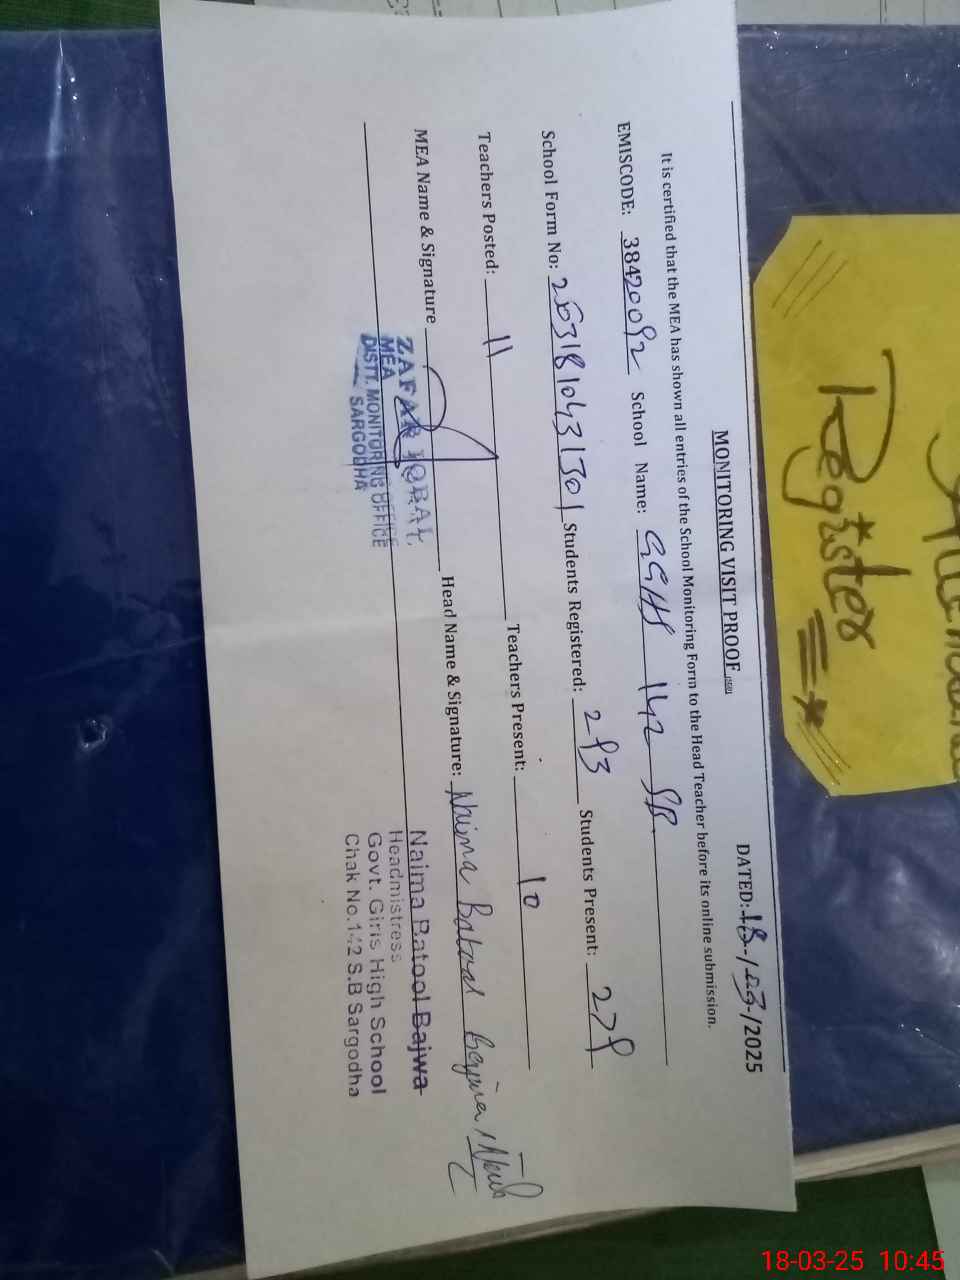 MONITORING VISIT PROOF
DATED: 18-/03-/2025
It is certified that the MEA has shown all entries of the School Monitoring Form to the Head Teacher before its online submission.
EMISCODE: 38420092 School Name: GGHS 142 SB
School Form No: Students Registered: 293 Students Present: 279
Teachers Posted: 11 Teachers Present: 10
MEA Name & Signature Head Name & Signature: Naima Batool Bajwa
ZAFAR IQBAL
MEA
DISTT. MONITORING OFFICE
SARGODHA
Naima Batool Bajwa
Headmistress
Govt. Girls High School
Chak No.142 S.B Sargodha
Register
18-03-25 10:45